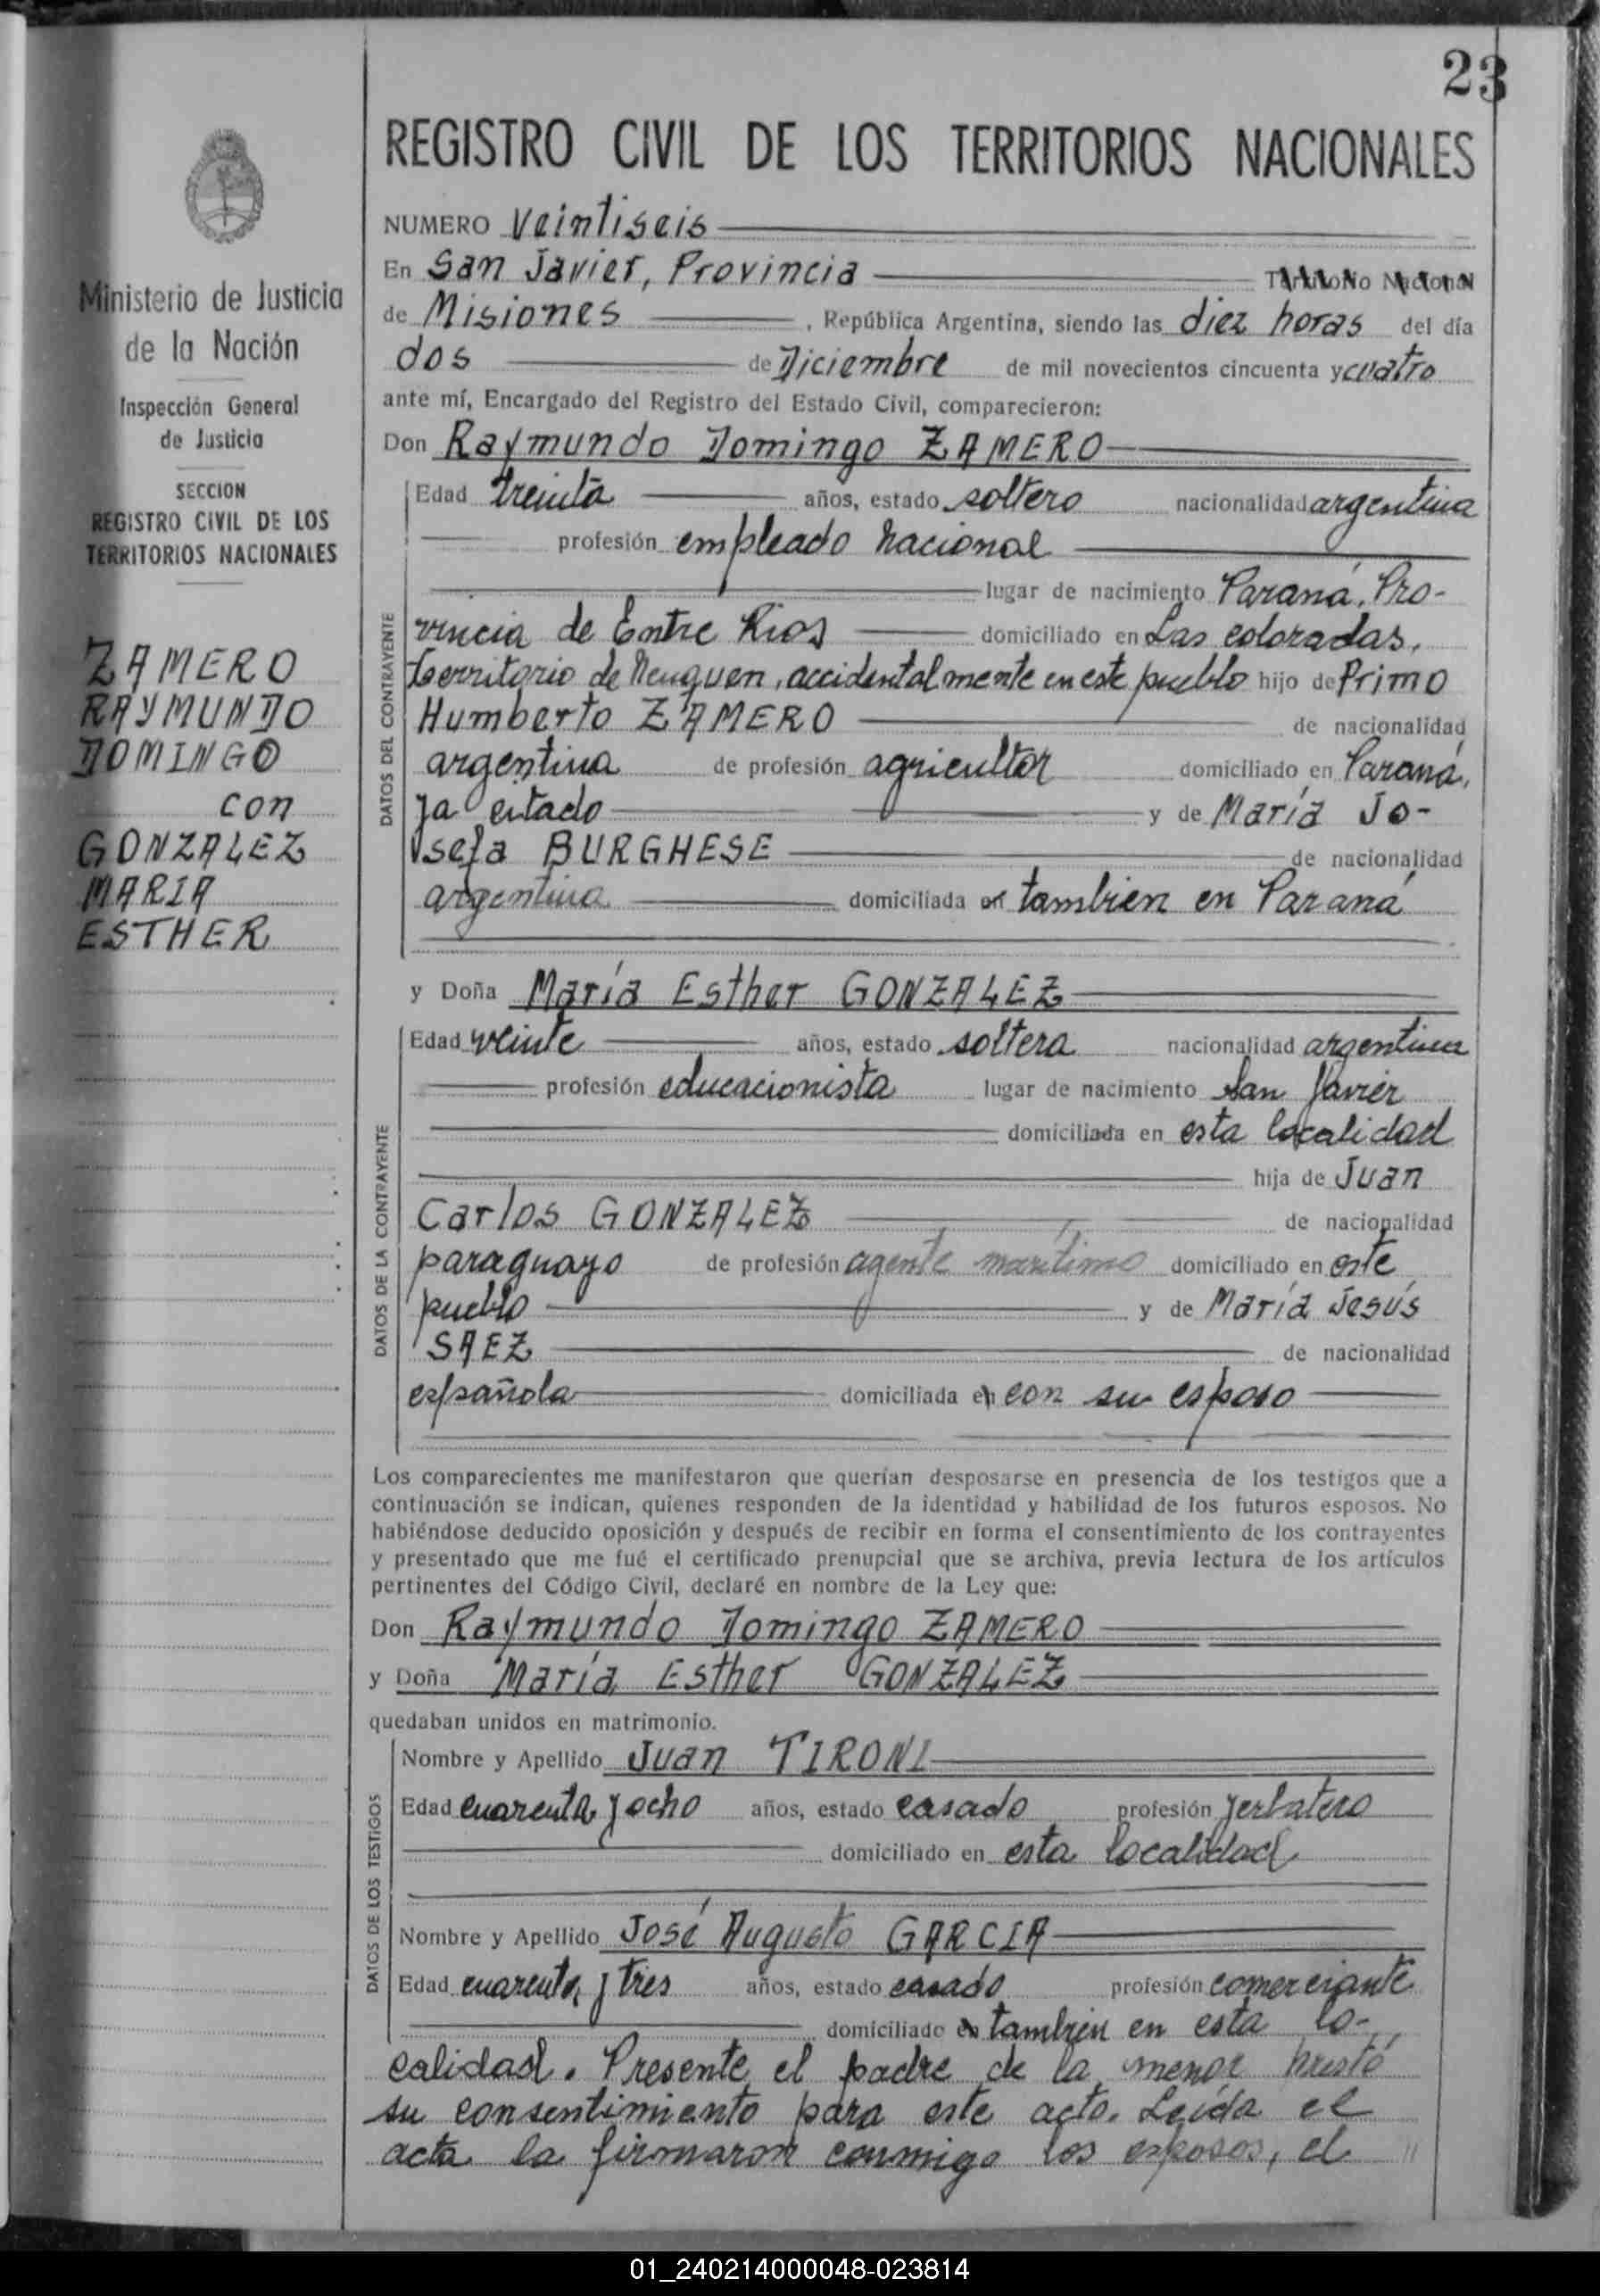 23
REGISTRO CIVIL DE LOS TERRITORIOS NACIONALES
Ministerio de Justicia
de la Nación
Inspección General
de Justicia
SECCION
REGISTRO CIVIL DE LOS
TERRITORIOS NACIONALES
ZAMERO
RAYMUNDO
DOMINGO
con
GONZALEZ
MARIA
ESTHER
NUMERO Veintiseis
En San Javier, Provincia Territorio Nacional
de Misiones, República Argentina, siendo las diez horas del día
dos de Diciembre de mil novecientos cincuenta y cuatro
ante mí, Encargado del Registro del Estado Civil, comparecieron:
Don Raymundo Domingo ZAMERO
DATOS DEL CONTRAYENTE
Edad treinta años, estado soltero nacionalidad argentina
profesión empleado nacional
lugar de nacimiento Paraná, Pro-
vincia de Entre Rios domiciliado en Las coloradas,
territorio de Neuquen, accidentalmente en este pueblo hijo de Primo
Humberto ZAMERO de nacionalidad
argentina de profesión agricultor domiciliado en Paraná,
ya citado y de María Jo-
sefa BURGHESE de nacionalidad
argentina domiciliada en tambien en Paraná
y Doña María Esther GONZALEZ
DATOS DE LA CONTRAYENTE
Edad veinte años, estado soltera nacionalidad argentina
profesión educacionista lugar de nacimiento San Javier
domiciliada en esta localidad
hija de Juan
Carlos GONZALEZ de nacionalidad
paraguayo de profesión agente marítimo domiciliado en este
pueblo y de María Jesús
SAEZ de nacionalidad
española domiciliada en con su esposo
Los comparecientes me manifestaron que querían desposarse en presencia de los testigos que a
continuación se indican, quienes responden de la identidad y habilidad de los futuros esposos. No
habiéndose deducido oposición y después de recibir en forma el consentimiento de los contrayentes
y presentado que me fué el certificado prenupcial que se archiva, previa lectura de los artículos
pertinentes del Código Civil, declaré en nombre de la Ley que:
Don Raymundo Domingo ZAMERO
y Doña María Esther GONZALEZ
quedaban unidos en matrimonio.
DATOS DE LOS TESTIGOS
Nombre y Apellido Juan TIRONI
Edad cuarenta y ocho años, estado casado profesión yerbatero
domiciliado en esta localidad
Nombre y Apellido José Augusto GARCIA
Edad cuarenta y tres años, estado casado profesión comerciante
domiciliado en tambien en esta lo-
calidad. Presente el padre de la menor prestó
su consentimiento para este acto. Leída el
acta la firmaron conmigo los esposos, el "
01_240214000048-023814